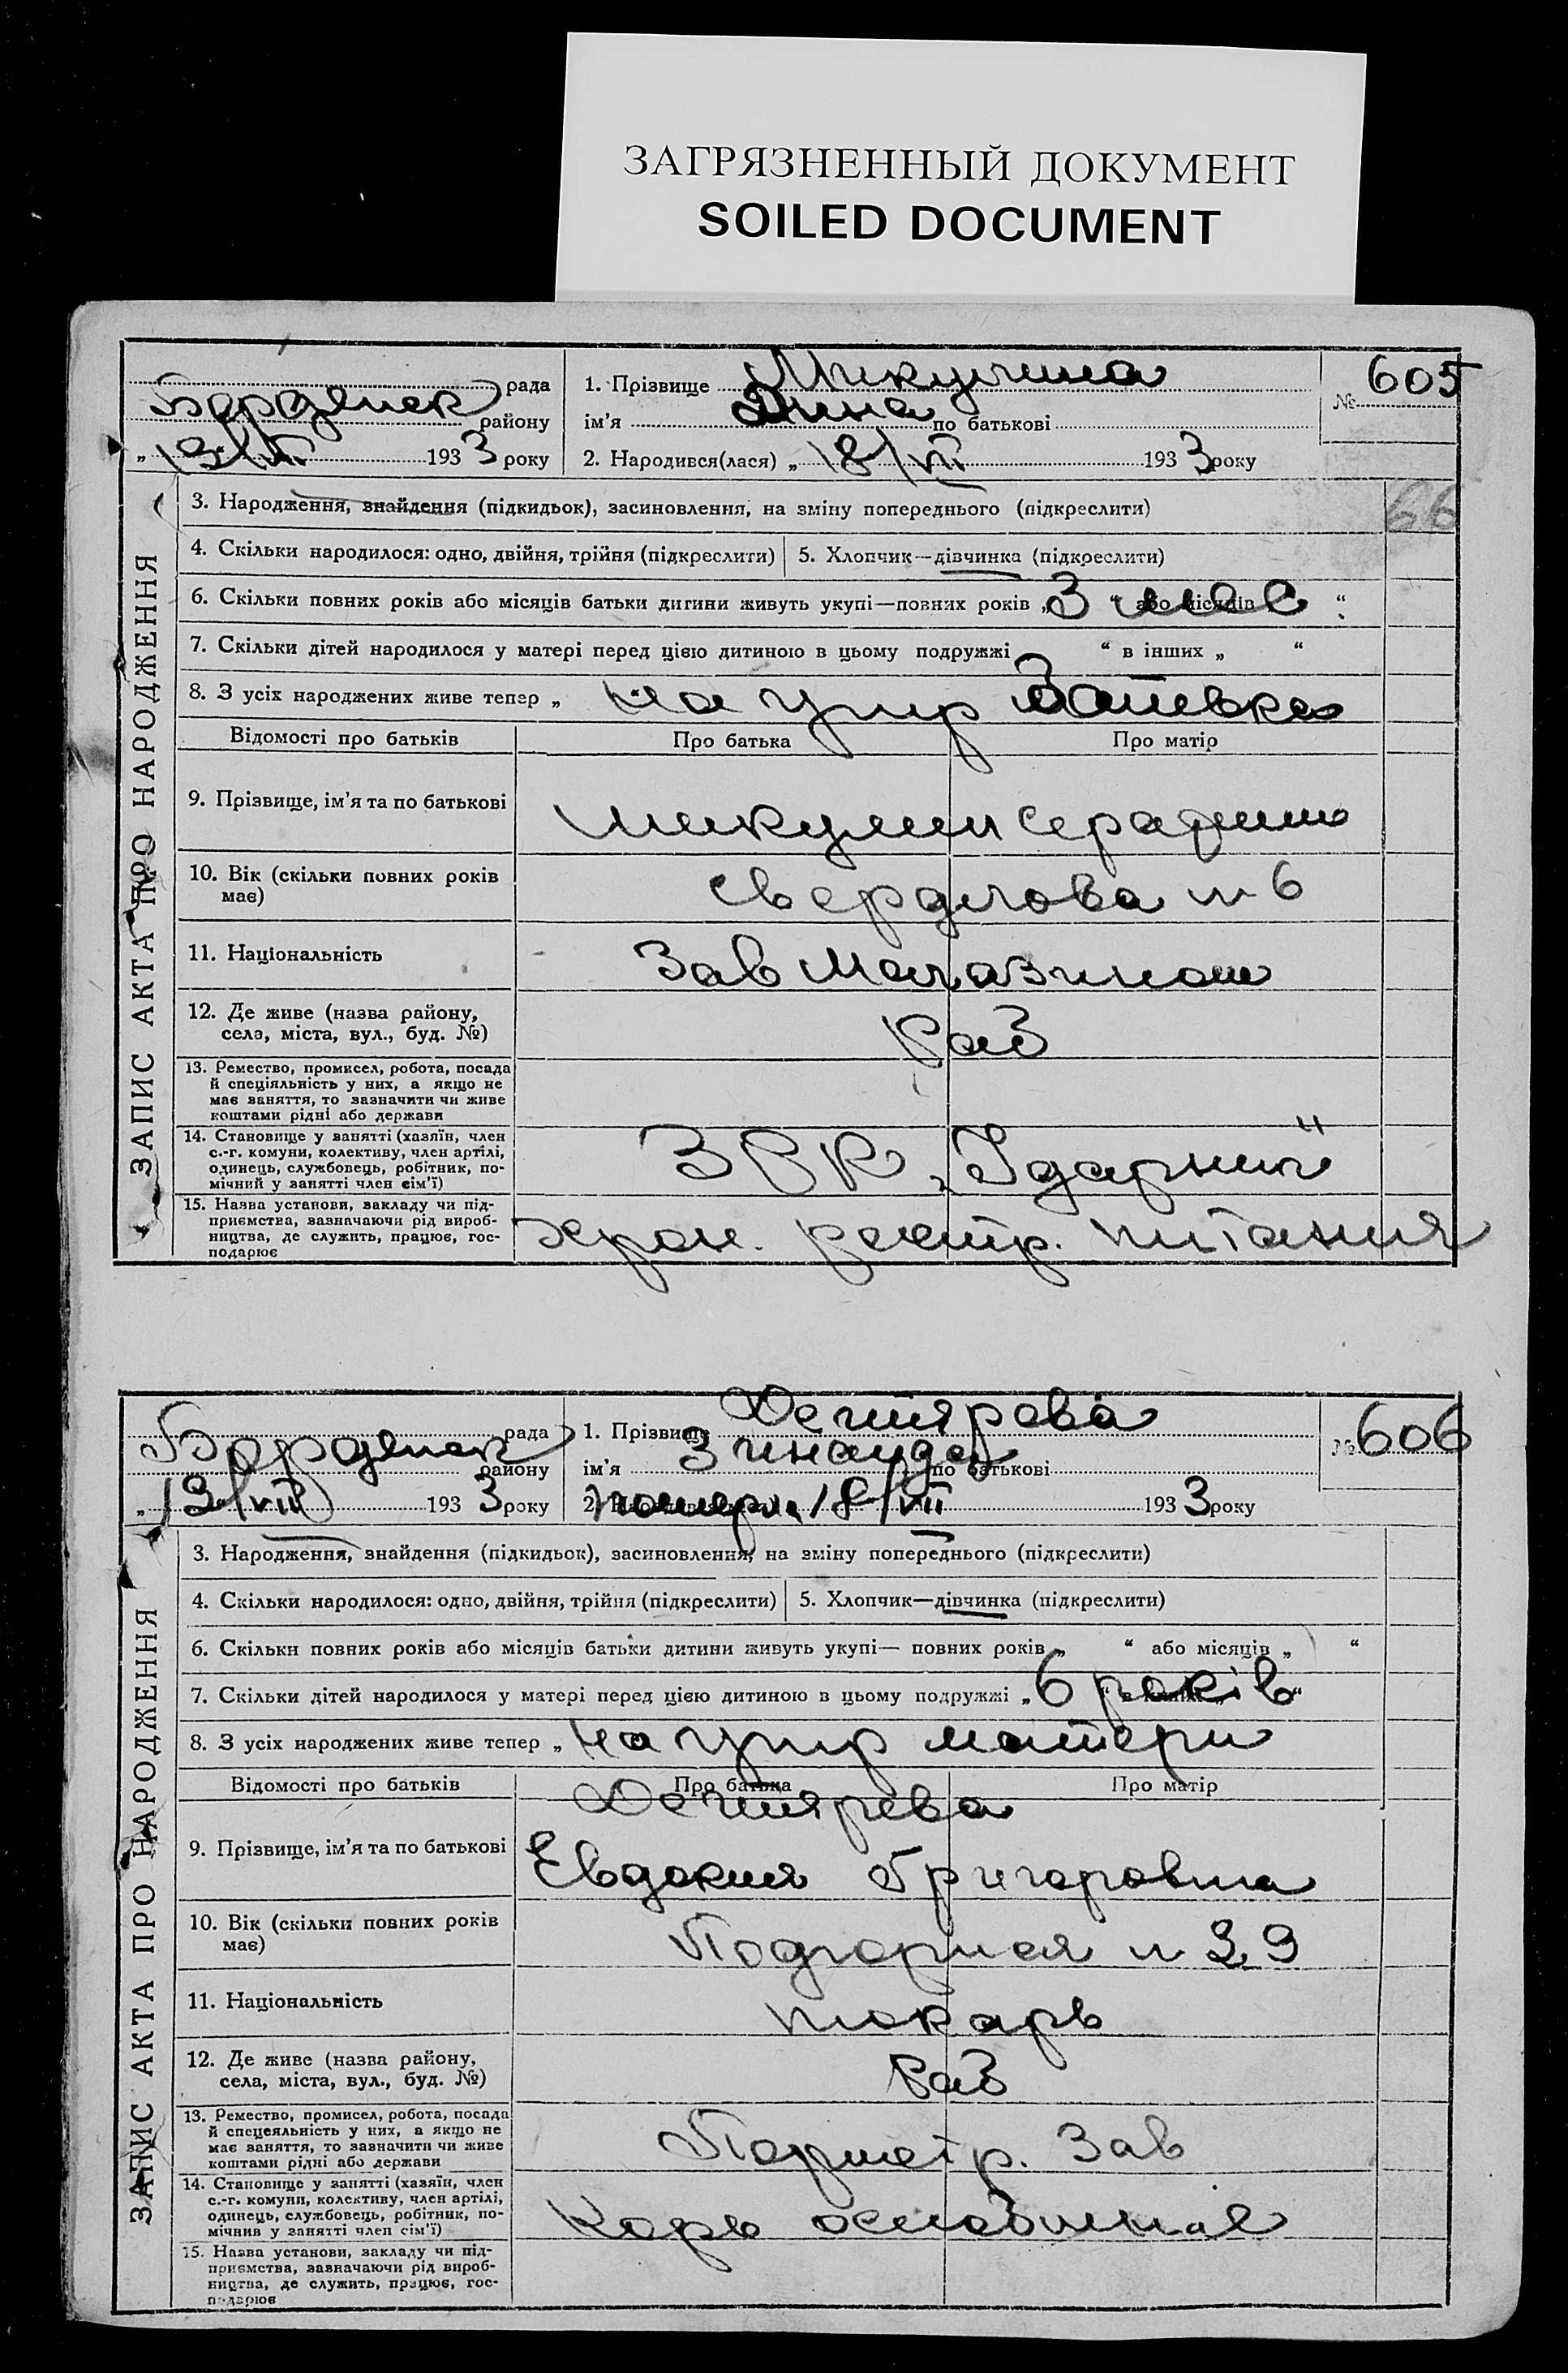 ЗАГРЯЗНЕННЫЙ ДОКУМЕНТ
SOILED DOCUMENT
ЗАПИС АКТА ПРО НАРОДЖЕННЯ
рада
Бердянск району
„ 19/VII 1933 року
1. Прізвище Микулина
ім’я по батькові
2. Народився(лася) „ 18/VII 1933 року
№ 605
3. Народження, знайдення (підкидьок), засиновлення, на зміну попереднього (підкреслити)
66
4. Скільки народилося: одно, двійня, трійня (підкреслити)
5. Хлопчик—дівчинка (підкреслити)
6. Скільки повних років або місяців батьки дитини живуть укупі—повних років „3 “ або місяців мес “
7. Скільки дітей народилося у матері перед цією дитиною в цьому подружжі “ в інших „ “
8. З усіх народжених живе тепер „ на утр
Відомості про батьків Про батька Про матір
9. Прізвище, ім’я та по батькові Микулин Серафим
10. Вік (скільки повних років має) Свердлова № 6
11. Національність Зав Магазином
12. Де живе (назва району, села, міста, вул., буд. №) Раб
13. Ремество, промисел, робота, посада
й спеціяльність у них, а якщо не
має заняття, то зазначити чи живе
коштами рідні або держави
14. Становище у занятті (хазяїн, член
с.-г. комуни, колективу, член артілі,
одинець, службовець, робітник, помічний у занятті член сім’ї)
ЗРК „Ударник"
15. Назва установи, закладу чи підприємства, зазначаючи рід виробництва, де служить, працює, господарює
хрон. расстр. питания
ЗАПИС АКТА ПРО НАРОДЖЕННЯ
рада
Бердянск району
„ 19/VII 1933 року
1. Прізвище Дегтярева
ім’я Зинаида по батькові
2. помер. 18/VII 1933 року
№ 606
3. Народження, знайдення (підкидьок), засиновлення, на зміну попереднього (підкреслити)
4. Скільки народилося: одно, двійня, трійня (підкреслити)
5. Хлопчик—дівчинка (підкреслити)
6. Скільки повних років або місяців батьки дитини живуть укупі— повних років „ “ або місяців „ “
7. Скільки дітей народилося у матері перед цією дитиною в цьому подружжі „ 6 років “
8. З усіх народжених живе тепер „ на утр матери
Відомості про батьків Про батька Про матір
Дегтярева
9. Прізвище, ім’я та по батькові Евдокия Григоровна
10. Вік (скільки повних років має) Подгорная № 29
11. Національність токарь
12. Де живе (назва району, села, міста, вул., буд. №) Раб
13. Ремество, промисел, робота, посада
й спецеяльність у них, а якщо не
має заняття, то зазначити чи живе
коштами рідні або держави
Зав
14. Становище у занятті (хазяїн, член
с.-г. комуни, колективу, член артілі,
одинець, службовець, робітник, помічник у занятті член сім’ї)
Корь
15. Назва установи, закладу чи підприємства, зазначаючи рід виробництва, де служить, працює, господарює